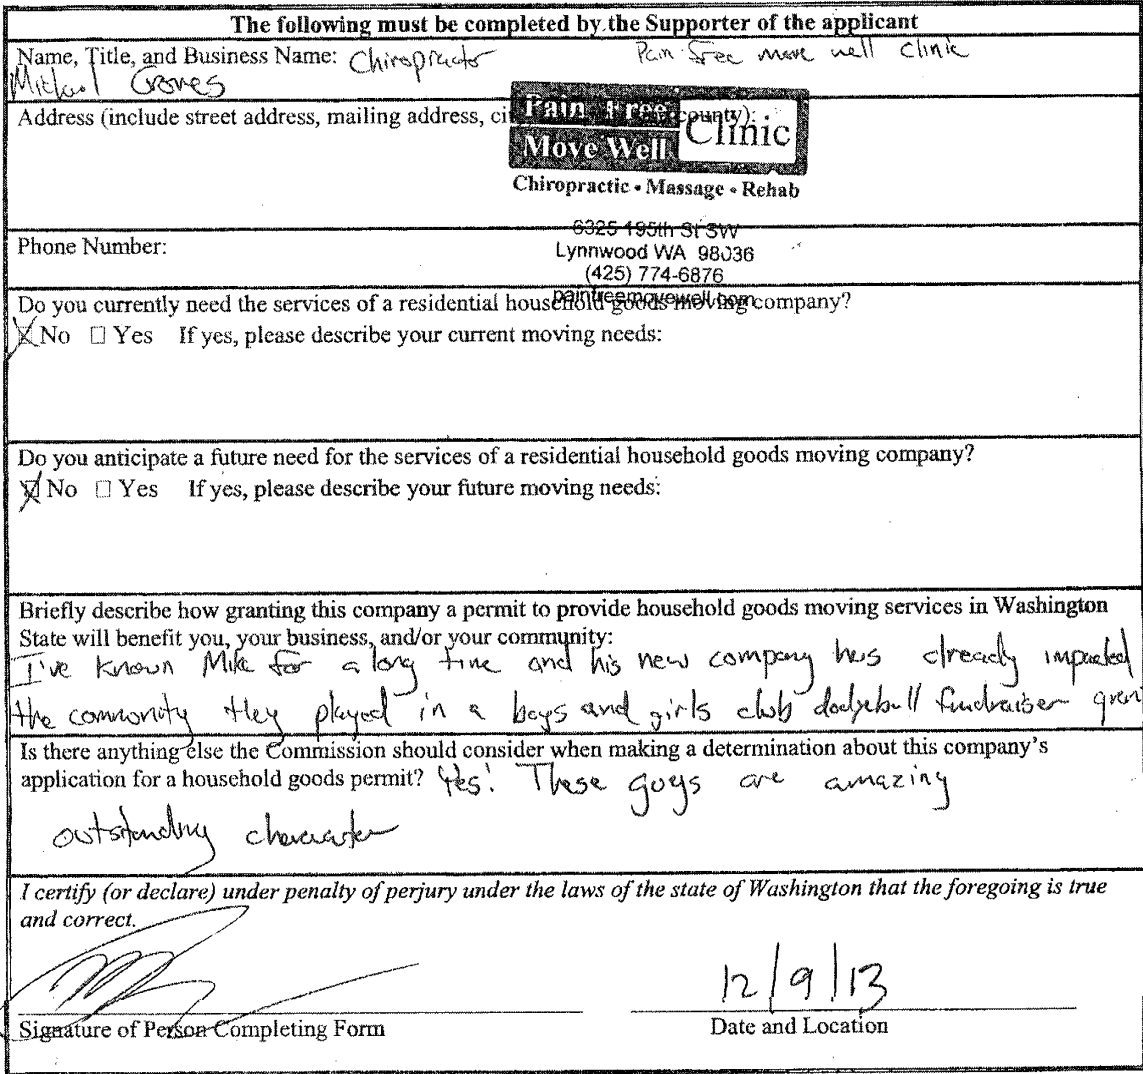 The following must be completed by the Supporter of the applicant
Name, Title, and Business Name: Chiropractor Pain Free move well Clinic
Michael Groves
Address (include street address, mailing address, county):
Pain Free
Move Well
Clinic
Chiropractic • Massage • Rehab
6325 195th St SW
Phone Number:
Lynnwood WA 98036
(425) 774-6876
painfreemovewell.com
Do you currently need the services of a residential household goods moving company?
No Yes If yes, please describe your current moving needs:
Do you anticipate a future need for the services of a residential household goods moving company?
No Yes If yes, please describe your future moving needs:
Briefly describe how granting this company a permit to provide household goods moving services in Washington
State will benefit you, your business, and/or your community:
I've known Mike for a long time and his new company has already impacted
the community they played in a boys and girls club dodgeball fundraiser
Is there anything else the Commission should consider when making a determination about this company's
application for a household goods permit? Yes! These guys are amazing
outstanding character
I certify (or declare) under penalty of perjury under the laws of the state of Washington that the foregoing is true
and correct.
12/9/13
Signature of Person Completing Form Date and Location